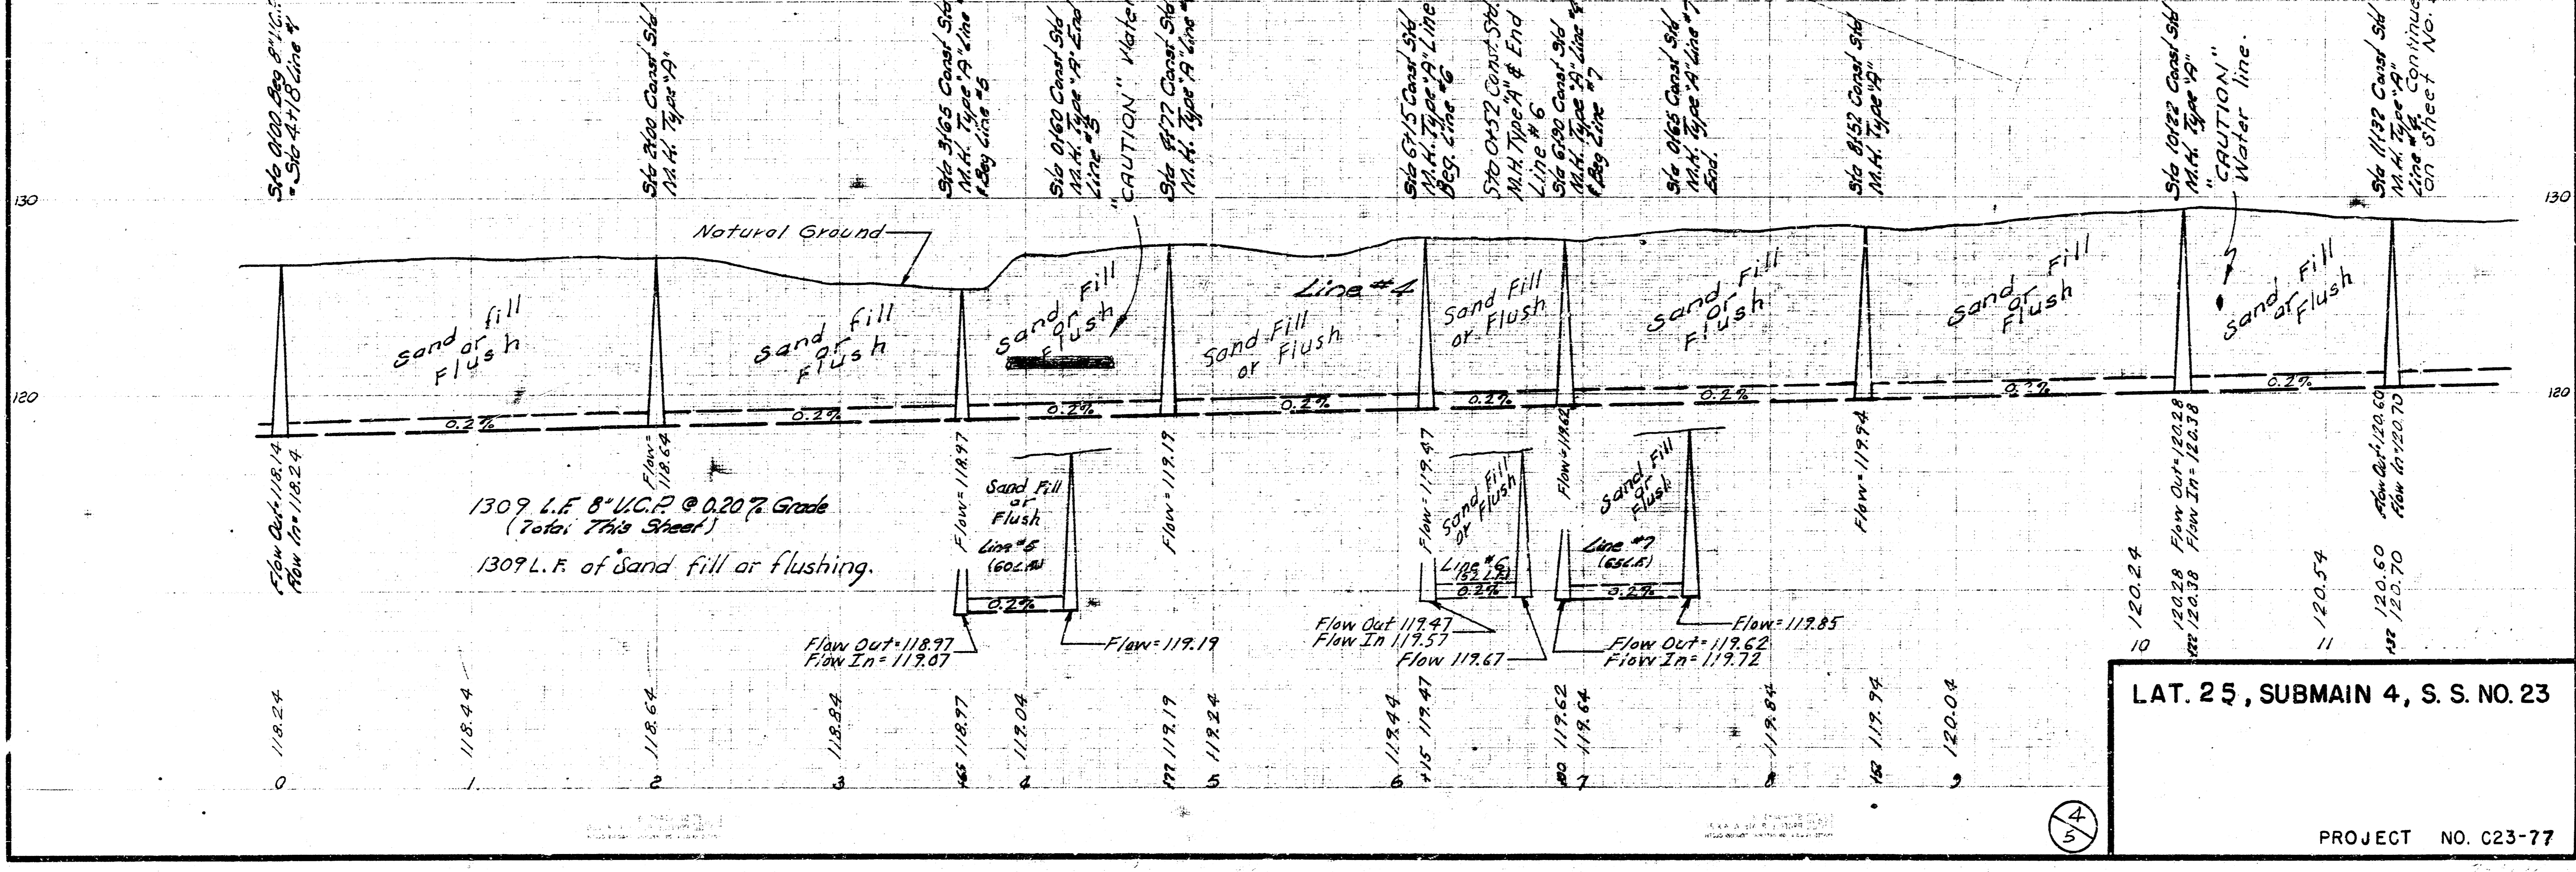 Sta 0+00 Beg 8" V.C.P.
= Sta 4+18 Line #
Sta 2+00 Const Std
M.H. Type "A"
Sta 3+65 Const Std
M.H. Type "A" Line #
& Beg Line #5
Sta 0+60 Const Std
M.H. Type "A" End
Line #5
"CAUTION" Water
Sta 4+77 Const Std
M.H. Type "A" Line #
Sta 6+15 Const Std
M.H. Type "A" Line
Beg. Line #6
Sta 0+52 Const. Std.
M.H. Type "A" & End
Line #6
Sta 6+90 Const Std
M.H. Type "A" Line #4
& Beg Line #7
Sta 0+65 Const Std
M.H. Type "A" Line #7
End.
Sta 8+52 Const Std
M.H. Type "A"
Sta 10+22 Const Std
M.H. Type "A"
"CAUTION"
Water line.
Sta 11+32 Const Std
M.H. Type "A"
Line #4 Continue
on Sheet No.
130
130
Natural Ground
Line #4
Sand fill
or
Flush
Sand fill
or
Flush
Sand Fill
or
Flush
Sand Fill
or Flush
Sand Fill
or Flush
Sand Fill
or
Flush
Sand Fill
or
Flush
Sand Fill
or
Flush
120
120
0.2%
0.2%
0.2%
0.2%
0.2%
0.2%
0.2%
0.2%
Flow Out=118.14
Flow In=118.24
Flow=
118.64
Flow=118.97
Flow=119.19
Flow=119.47
Flow=119.62
Flow=119.94
Flow Out=120.28
Flow In=120.38
Flow Out=120.60
Flow In=120.70
1309 L.F. 8" V.C.P. @ 0.20% Grade
(Total This Sheet)
1309 L.F. of Sand fill or flushing.
Sand Fill
or
Flush
Line #5
(60 L.F.)
0.2%
Flow Out=118.97
Flow In=119.07
Flow=119.19
Sand Fill
or Flush
Line #6
(52 L.F.)
0.2%
Flow Out 119.47
Flow In 119.57
Flow 119.67
Sand Fill
or
Flush
Line #7
(65 L.F.)
0.2%
Flow=119.85
Flow Out=119.62
Flow In=119.72
118.24
118.44
118.64
118.84
118.97
119.04
119.19
119.24
119.44
119.47
119.62
119.64
119.84
119.94
120.04
120.24
120.28
120.38
120.54
120.60
120.70
0
1
2
3
+65
4
+77
5
6
+15
+90
7
8
+52
9
10
+22
11
+32
LAT. 25, SUBMAIN 4, S. S. NO. 23
4
5
PROJECT NO. C23-77